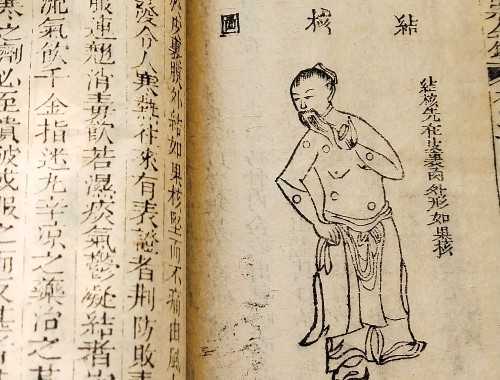 結核圖
結核先在皮裏肉外形如果核
皮裏膜外結如果核堅而不痛由風
發令人寒熱往來有表證者荊防敗毒
服連翹消毒飲若濕痰氣鬱凝結者
流氣飲千金指迷丸辛凉之藥治之
寒之劑必至潰破或服之而反甚